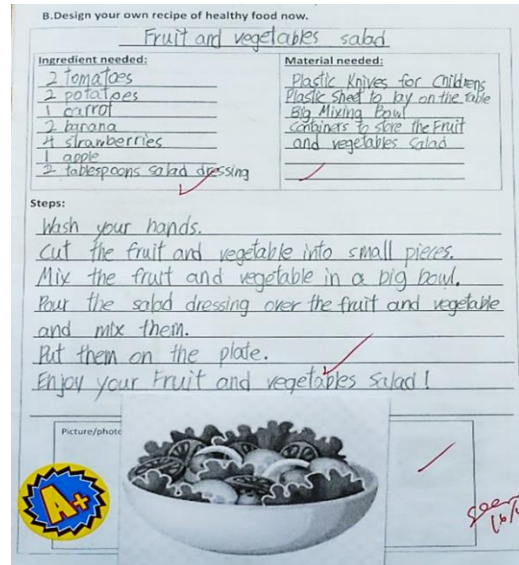 B.Design your own recipe of healthy food now.
Fruit and vegetables salad
Ingredient needed:
2 tomatoes
2 potatoes
1 carrot
2 banana
4 strawberries
1 apple
2 tablespoons salad dressing
Material needed:
Plastic Knives for Childrens
Plastic Sheet to lay on the table
Big Mixing Bowl
Containers to store the Fruit
and vegetables Salad
Steps:
Wash your hands.
Cut the fruit and vegetable into small pieces.
Mix the fruit and vegetable in a big bowl.
Pour the salad dressing over the fruit and vegetable
and mix them.
Put them on the plate.
Enjoy your Fruit and vegetables Salad!
Picture/photo
A+
Seen